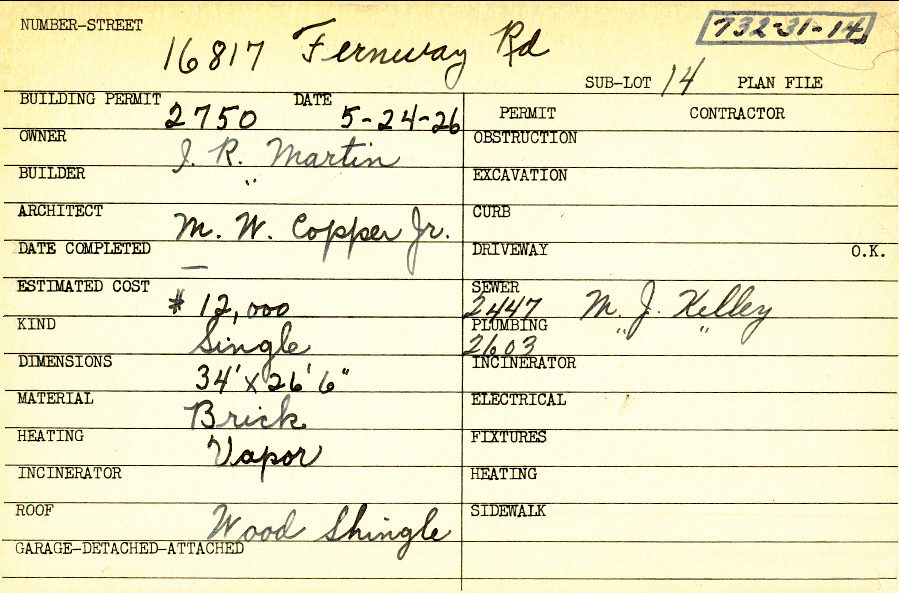 NUMBER-STREET 16817 Fernway Rd 732-31-14
SUB-LOT 14 PLAN FILE
BUILDING PERMIT 2750 DATE 5-24-26
PERMIT CONTRACTOR
OWNER J. R. Martin
OBSTRUCTION
BUILDER "
EXCAVATION
ARCHITECT M. W. Copper Jr.
CURB
DATE COMPLETED —
DRIVEWAY O.K.
ESTIMATED COST $ 12,000
SEWER 2447 M. J. Kelley
KIND Single
PLUMBING 2603 " "
DIMENSIONS 34' x 26' 6"
INCINERATOR
MATERIAL Brick
ELECTRICAL
HEATING Vapor
FIXTURES
INCINERATOR
HEATING
ROOF Wood Shingle
SIDEWALK
GARAGE-DETACHED-ATTACHED